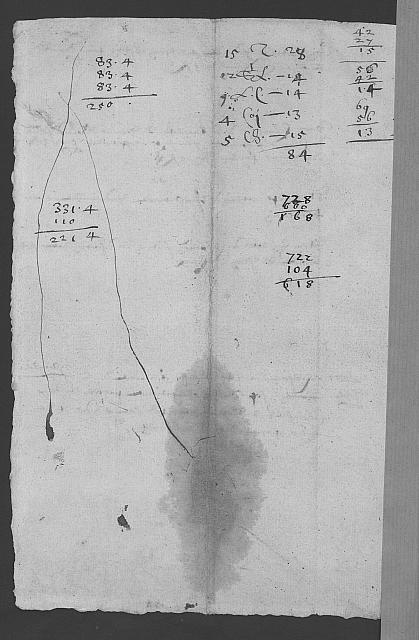 83.4
83.4
83.4
250.
331.4
110
221 4
15 28
14
14
4 13
5 15
84
728
168
722
104
618
42
27
15
56
42
14
69
56
13